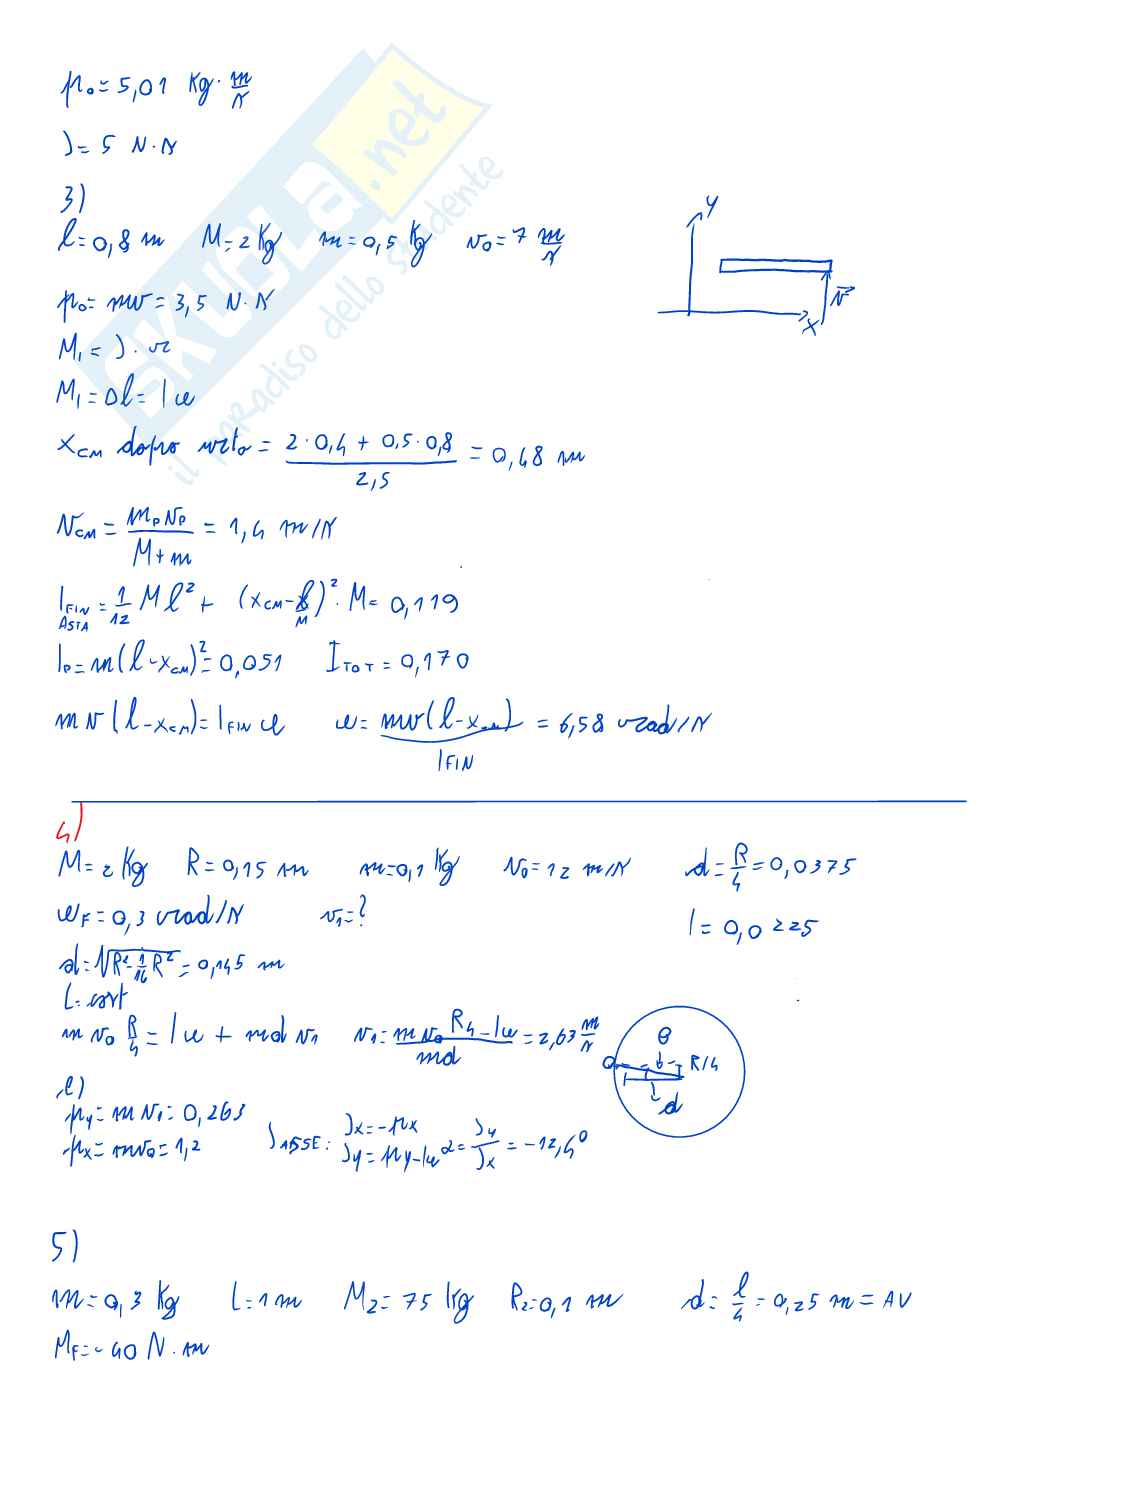 p₀ = 5,01 kg · m/s
J = 5 N · s
3)
l = 0,8 m M = 2 Kg m = 0,5 Kg v₀ = 7 m/s
p₀ = mv = 3,5 N · s
M₁ = J · r
M₁ = Δl = I ω
X_CM dopo urto = (2 · 0,4 + 0,5 · 0,8) / 2,5 = 0,48 m
V_CM = m_P v_P / (M + m) = 1,4 m/s
I_FIN ASTA = 1/12 M l² + (X_CM - X_M)² · M = 0,119
I_P = m(l - X_CM)² = 0,051 I_TOT = 0,170
m v (l - X_CM) = I_FIN ω ω = mv(l - X_CM) / I_FIN = 6,58 rad/s
y
x
v
4)
M = 2 Kg R = 0,15 m m = 0,1 Kg v₀ = 12 m/s d = R/4 = 0,0375
ω_F = 0,3 rad/s v₁ = ? I = 0,0225
d = √(R² - 1/16 R²) = 0,145 m
L = cost
m v₀ R/4 = I ω + m d v₁ v₁ = (m v₀ R/4 - I ω) / md = 2,63 m/s
θ
R/4
d
p_y = m v₁ = 0,263
p_x = m v₀ = 1,2
J_ASSE: J_x = -p_x
J_y = p_y - I ω α = J_y / J_x = -12,4°
5)
m = 0,3 Kg L = 1 m M₂ = 75 kg R₂ = 0,1 m d = l/4 = 0,25 m = AV
M_F = -40 N · m
SKUOLA.net
il paradiso dello studente